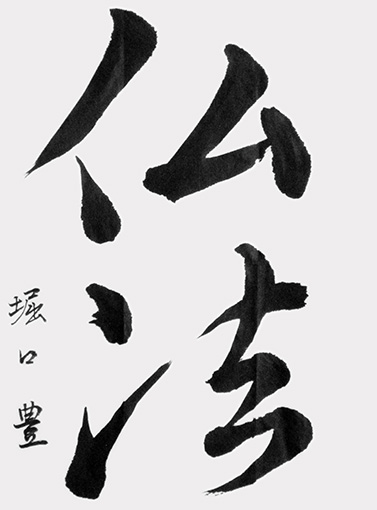 仏法
堀口豊